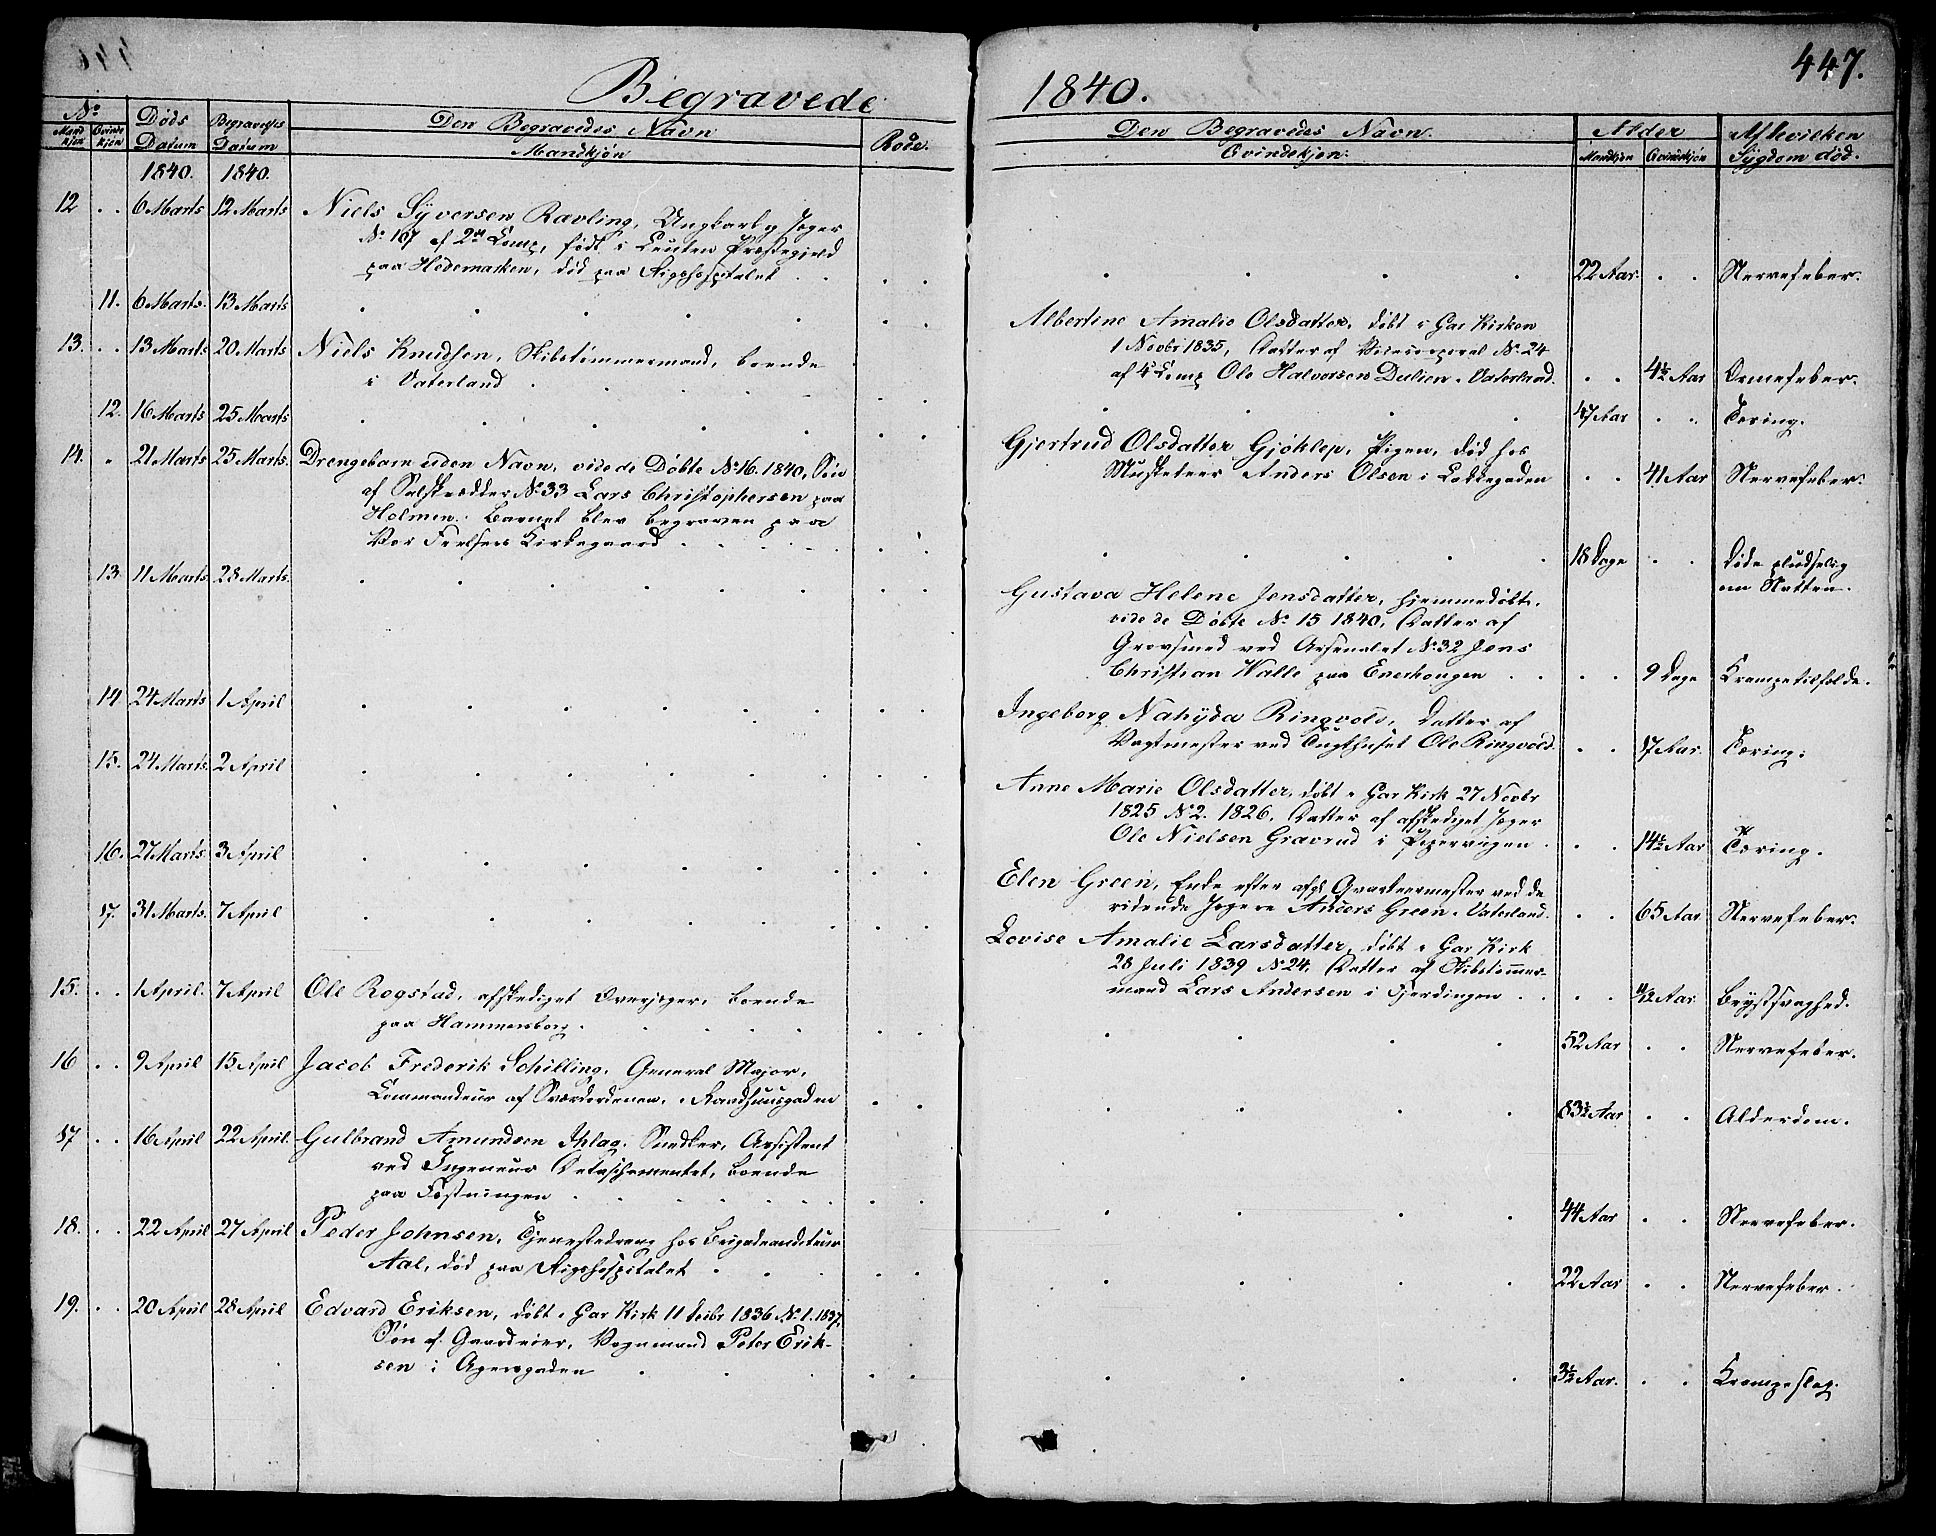 447.
Begravede 1840.
No
Mand kjøn
Qvinde kjøn
Døds Datum
Begravelses Datum
Den Begravedes Navn
Mandkjøn
Rode.
Den Begravedes Navn.
Qvindekjøn.
Alder
Mandkjøn
Qvindkjøn
Af hvilken Sygdom død.
1840. 1840.
12 6 Marts 12 Marts Niels Syversen Ravling, Ungkarl og Jæger
No 107 af 2den Comp, født i Leuten Præstegjeld
paa Hedemarken, død paa Rigshospitalet 22 Aar. Nervefeber.
11. 6 Marts. 13 Marts Albertine Amalie Olsdatter, døbt i Gar Kirken
1 Novbr 1835, Datter af Vicecorporal No 24
af 4de Comp Ole Halvorsen Dulien i Vaterland. 4½ Aar Ormefeber.
13. 13 Marts 20 Marts Niels Knudsen, Skibstømmermand, boende
i Vaterland 47 Aar Tæring.
12. 16 Marts 25 Marts Gjertrud Olsdatter Gjøklep, Pigen, død hos
Musketeer Anders Olsen i Løkkegaden 41 Aar Nervefeber.
14. 21 Marts 25 Marts. Drengebarn uden Navn, vide de Døbte No 16. 1840, Søn
af Sølskredder No 33 Lars Christophersen paa
Holmen. Barnet blev begraven paa
Vor Frelsers Kirkegaard 18 Dage Døde pludselig
om Natten.
13. 11 Marts 28 Marts. Gustava Helene Jensdatter, hjemmedøbt,
vide de Døbte No 15 1840, Datter af
Grovsmed ved Arsenalet No 32 Jens
Christian Walle paa Enerhougen 9 Dage Krampetilfælde.
14 24 Marts 1 April Ingeborg Nahyda Ringvold, Datter af
Vagtmester ved Tugthuset Ole Ringvold. 17 Aar. Tæring.
15. 24 Marts. 2 April Anne Marie Olsdatter, døbt i Gar Kirk 27 Novbr
1825 No 2. 1826, Datter af afskediget Jæger
Ole Nielsen Gravrud i Pipervigen 14½ Aar Tæring.
16. 27 Marts 3 April Elen Green, Enke efter afg. Qvarteermester ved de
ridende Jægere Anders Green i Vaterland. 65 Aar Nervefeber.
17. 31 Marts. 7 April Lovise Amalie Larsdatter, døbt i Gar Kirk
28 Juli 1839 No 24, Datter af Skibstømmer-
mand Lars Andersen i Fjerdingen Aar. Brystsvaghed.
15. 1 April. 7 April Ole Rogstad, afskediget Overjæger, boende
paa Hammersborg. 52 Aar Nervefeber.
16 9 April 15 April Jacob Frederik Schilling, General Major,
Commandeur af Sværdordenen, i Raadhuusgaden 83½ Aar Alderdom.
17 16 April 22 April. Gulbrand Amundsen Snedker, Assistent
ved Ingeneur Detaschementet, boende
paa Fæstningen 44 Aar Nervefeber.
18. 22 April 27 April Peder Johnsen, Tjenestedreng hos Brigadeauditeur
Aal, død paa Rigshospitalet 22 Aar Nervefeber
19. 20 April 28 April Edvard Eriksen, døbt i Gar Kirk 11 Decbr 1836 No 1. 1837,
Søn af Gaardeier, Vognmand Peter Erik-
sen i Agersgaden 3½ Aar. Krampeslag.